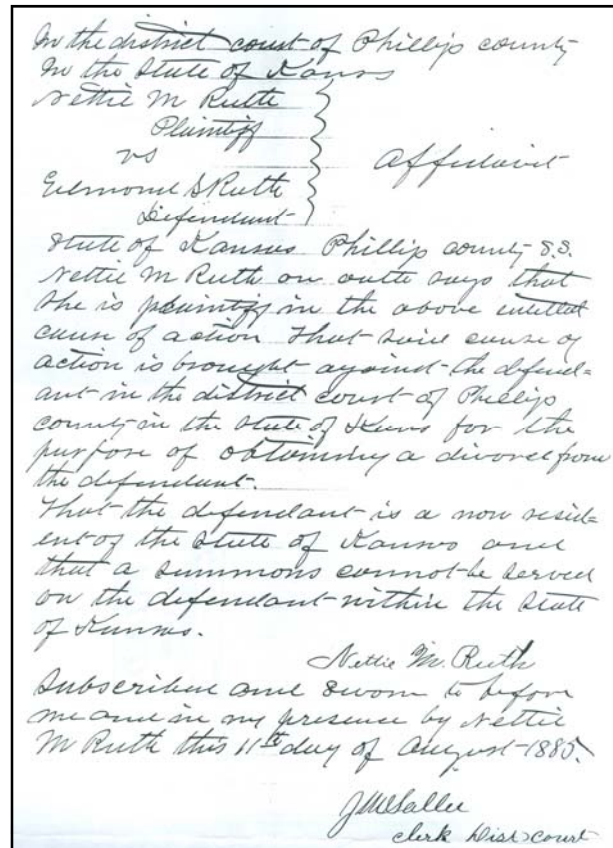 In the district court of Phillips county
In the State of Kansas
Nettie M Ruth
Plaintiff
vs
Affidavit
Edmond S Ruth
Defendant
State of Kansas Phillips county S.S.
Nettie M Ruth on oath says that
she is plaintiff in the above entitled
cause of action that said cause of
action is brought against the defend=
ant in the district court of Phillips
county in the State of Kans for the
purpose of obtaining a divorce from
the defendant.
That the defendant is a non resid=
ent of the State of Kansas and
that a summons cannot be served
on the defendant within the State
of Kansas.
Nettie M. Ruth
Subscribed and sworn to before
me and in my presence by Nettie
M Ruth this 11th day of August 1885.
clerk Dist court